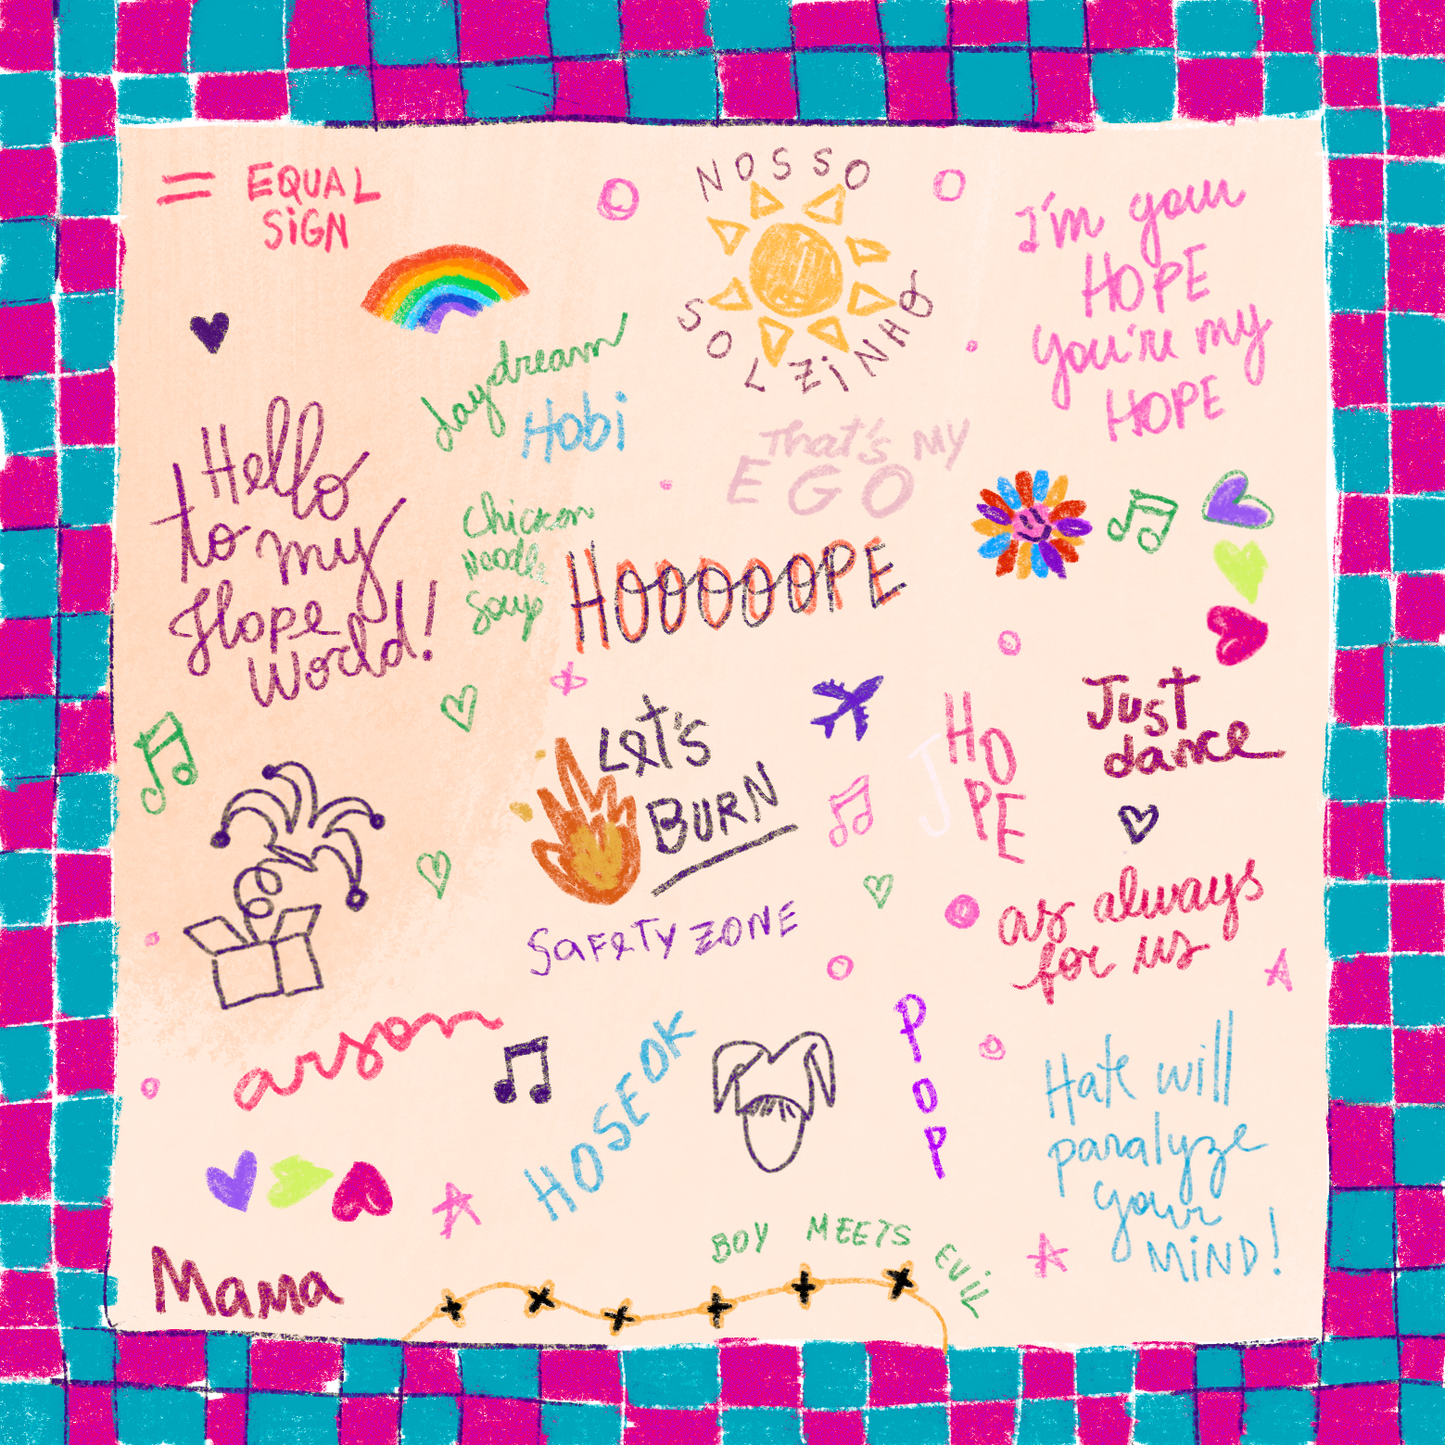 = EQUAL
SiGN
NOSSO
SOLZiNHO
I'm your
HOPE
you're my
HOPE
daydream
Hobi
That's MY
EGO
Hello
to my
Hope
World!
Chicken
Noodle
Soup
HOOOOOPE
Let's
BURN
J
HO
PE
Just
dance
SaFeTY ZONE
as always
for us
arson
HOSEOK
POP
Hate will
paralyze
your
MiND!
Mama
BOY MEETS EViL